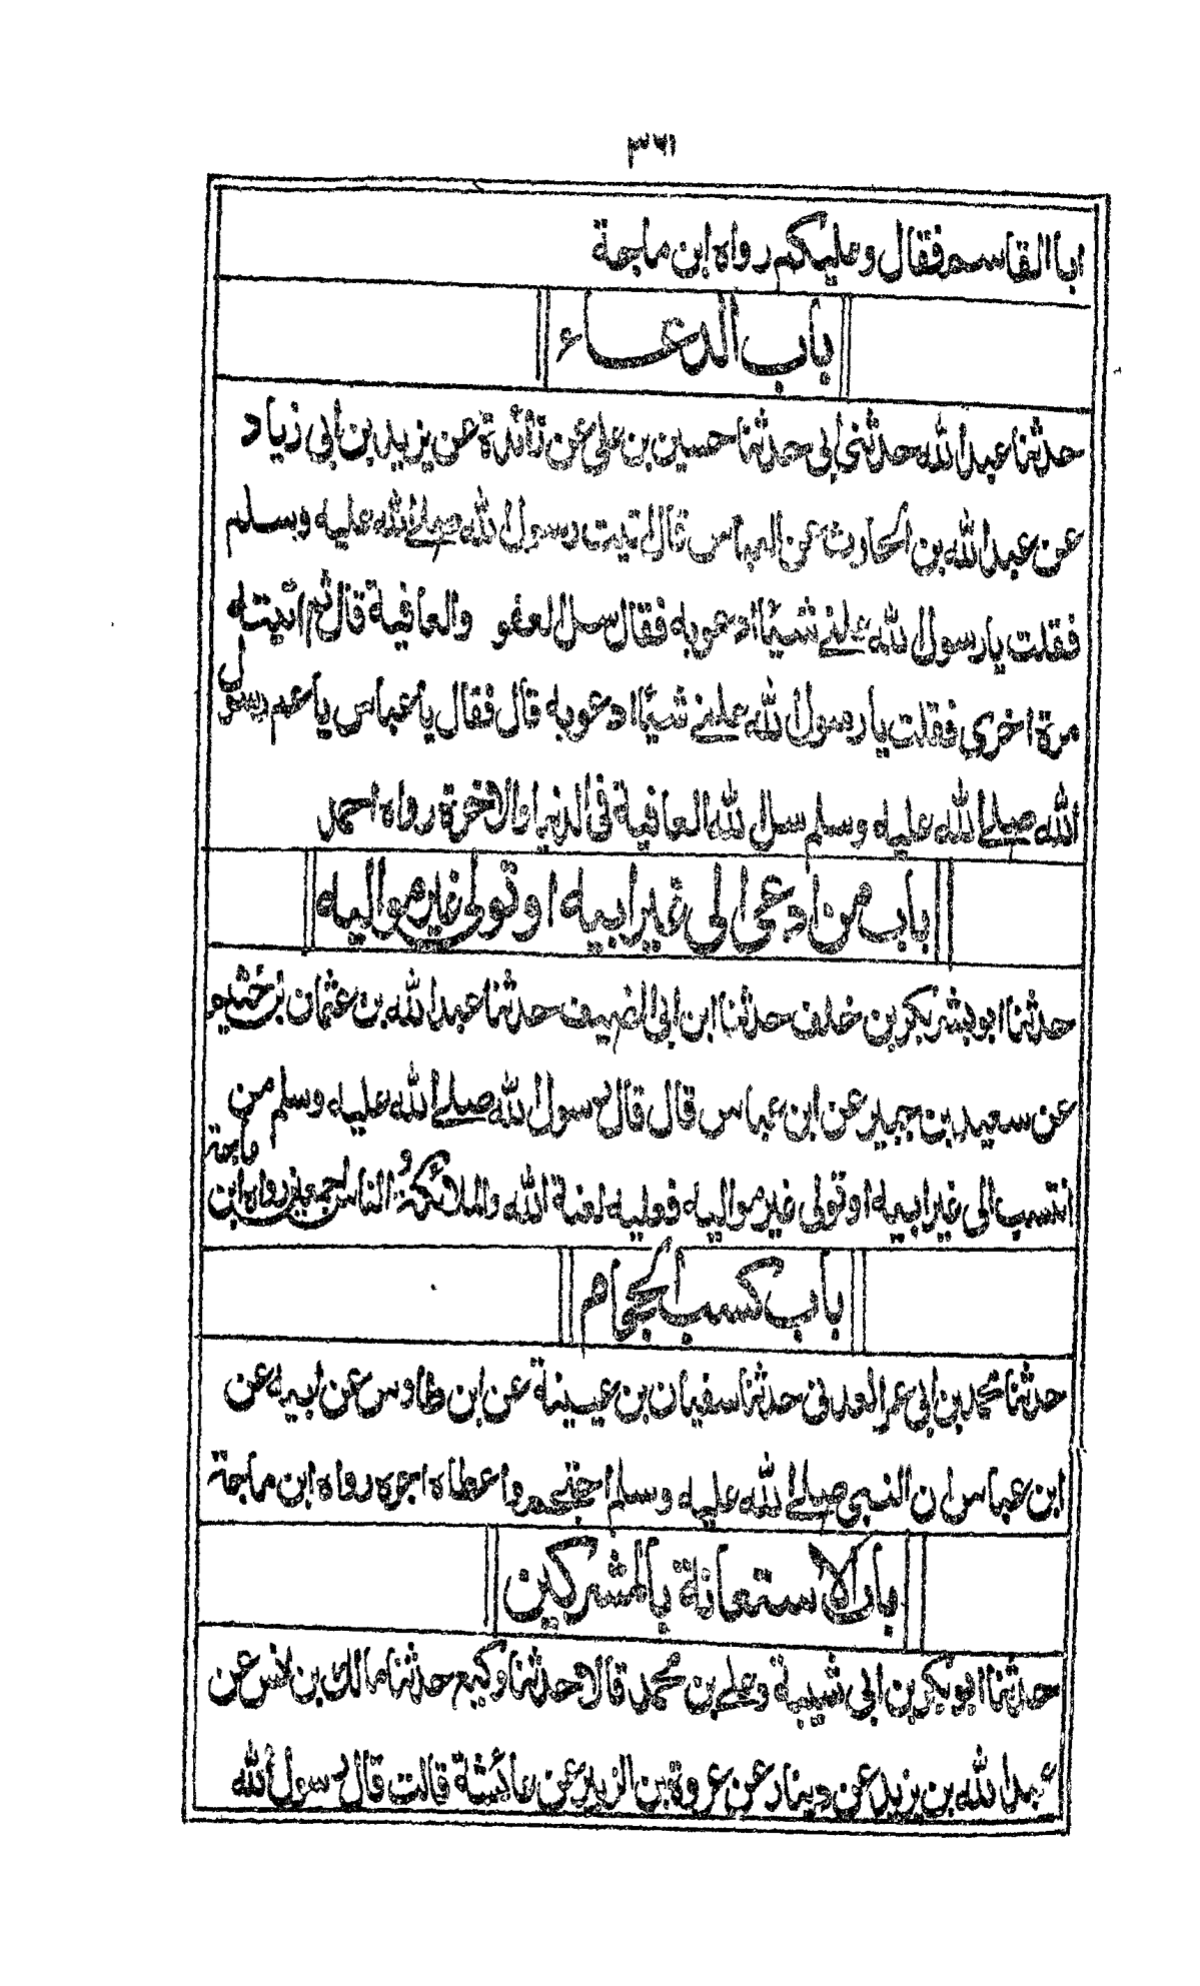 ٣٦١
ابا القاسم فقال وعليكم رواه ابن ماجة
باب الدعاء
حدثنا عبد الله حدثني ابي حدثنا حسين بن علي عن زائدة عن يزيد بن ابي زياد
عن عبد الله بن الحارث عن العباس قال اتيت رسول الله صلى الله عليه وسلم
فقلت يا رسول الله علمني شيئا ادعو به فقال سل العفو والعافية قال ثم اتيته
مرة اخرى فقلت يا رسول الله علمني شيئا ادعو به قال فقال يا عباس يا عم رسول
الله صلى الله عليه وسلم سل الله العافية في الدنيا والاخرة رواه احمد
باب من ادعى الى غير ابيه او تولى غير مواليه
حدثنا ابو بشر بكر بن خلف حدثنا ابن ابي الضيف حدثنا عبد الله بن عثمان بن خثيم
عن سعيد بن جبير عن ابن عباس قال قال رسول الله صلى الله عليه وسلم من
انتسب الى غير ابيه او تولى غير مواليه فعليه لعنة الله والملائكة و الناس اجمعين رواه ابن ماجة
باب كسب الحجام
حدثنا محمد بن ابي عمر العدني حدثنا سفيان بن عيينة عن ابن طاوس عن ابيه عن
ابن عباس ان النبي صلى الله عليه وسلم احتجم واعطاه اجره رواه ابن ماجة
باب الاستعانة بالمشركين
حدثنا ابو بكر بن ابي شيبة وعلي بن محمد قالا حدثنا وكيع حدثنا مالك بن انس عن
عبد الله بن يزيد عن دينار عن عروة بن الزبير عن عائشة قالت قال رسول الله